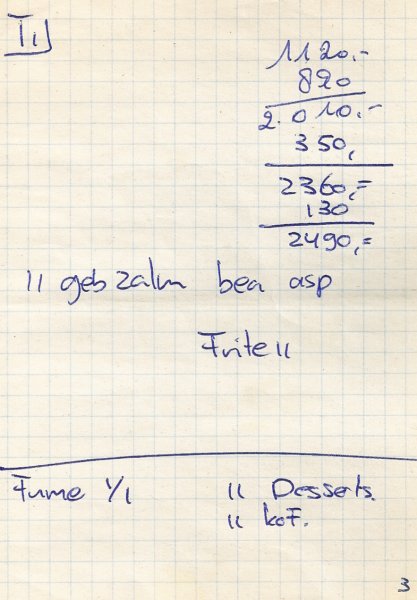 T1
1120,-
890
2.010,-
350,
2360,=
130
2490,=
11 geb zalm bea asp
Frite 11
Fume 1/1 11 Desserts.
11 kof.
3